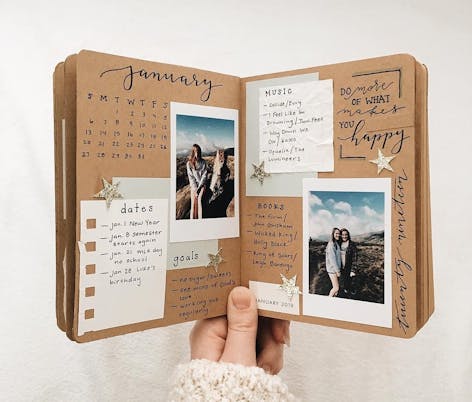 January
S M T W T F S
1 2 3 4 5
6 7 8 9 10 11 12
13 14 15 16 17 18 19
20 21 22 23 24 25 26
27 28 29 30 31
dates
- jan 1 New Year
- jan 8 Semester
starts again
- jan 21 mlk day
no school
- jan 28 Luke's
birthday
goals
- no sugar/
- see more of God's
love
- working out
regularly
MUSIC
- Collide/
- I Feel Like I'm
Drowning/Two Feet
- Way Down We
Go/Kaleo
- Ophelia/The
Lumineers
BOOKS
- The Firm/
John Grisham
- Wicked King/
Holly Black
- King of Scars/
Leigh Bardugo
JANUARY 2019
DO more
OF WHAT
makes
YOU
happy
twenty nineteen